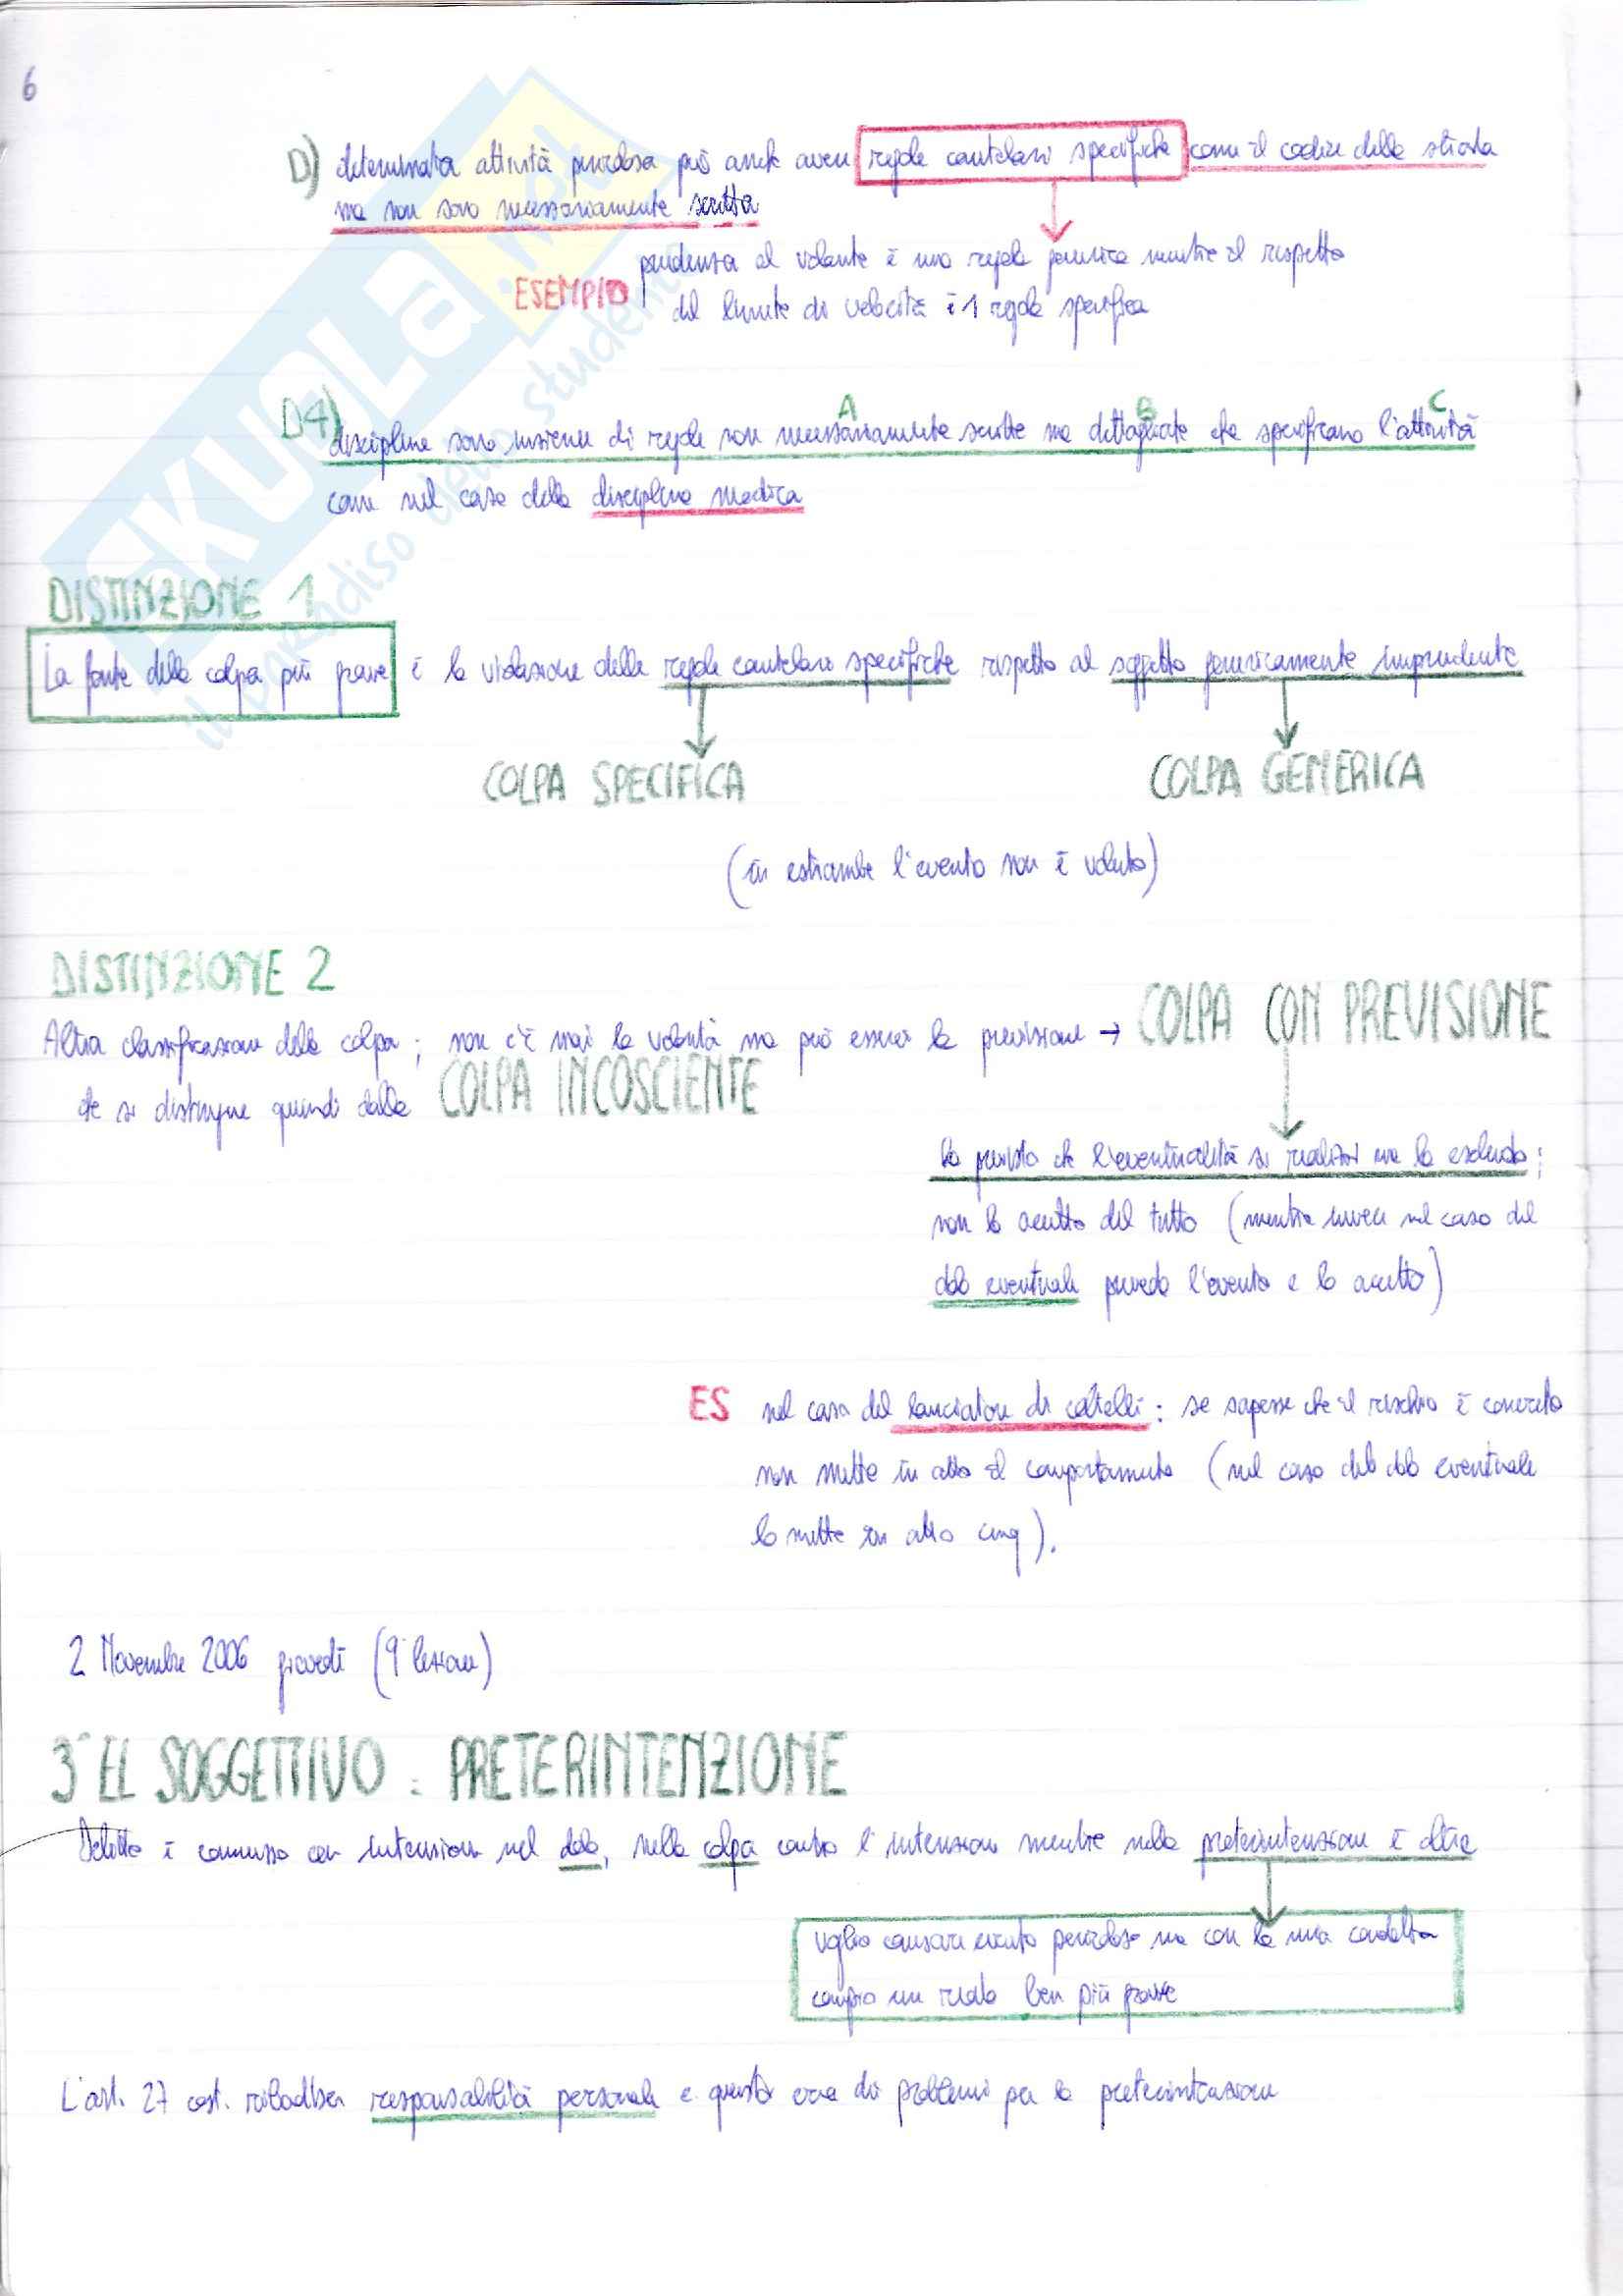 6
D) determinata attività pericolosa può anche avere regole cautelari specifiche come il codice della strada
ma non sono necessariamente scritta
ESEMPIO prudenza al volante è una regola generica mentre il rispetto
del limite di velocità è 1 regola specifica
A B C
D4) discipline sono insieme di regole non necessariamente scritte ma dettagliate che specificano l'attività
come nel caso della disciplina medica
DISTINZIONE 1
La fonte della colpa più grave è la violazione delle regole cautelari specifiche rispetto al soggetto genericamente imprudente
COLPA SPECIFICA COLPA GENERICA
(in entrambe l'evento non è voluto)
DISTINZIONE 2
Altra classificazione della colpa; non c'è mai la volontà ma può esserci la previsione → COLPA CON PREVISIONE
che si distingue quindi dalla COLPA INCOSCIENTE
ho previsto che l'eventualità si realizzi ma la escludo;
non lo accetto del tutto (mentre invece nel caso del
dolo eventuale prevedo l'evento e lo accetto)
ES nel caso del lanciatore di coltelli: se sapesse che il rischio è concreto
non mette in atto il comportamento (nel caso del dolo eventuale
lo mette in atto cmq).
2 Novembre 2006 giovedì (9ª lezione)
3° EL SOGGETTIVO: PRETERINTENZIONE
Delitto è commesso con intenzione nel dolo, nella colpa contro l'intenzione mentre nella preterintenzione è oltre
voglio causare evento pericoloso ma con la mia condotta
compio un reato ben più grave
L'art. 27 cost. ribadisce responsabilità personale e questo crea dei problemi per la preterintenzione
SKUOLA.net
il paradiso dello studente